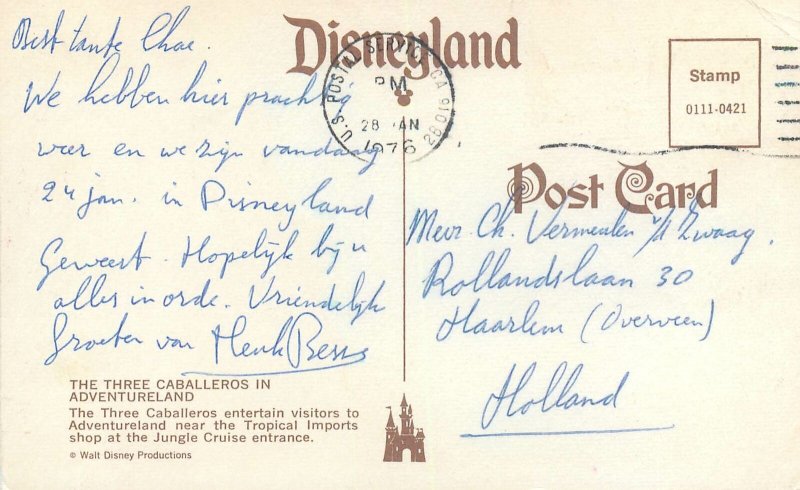 Disneyland
Beste tante Chae.
We hebben hier prachtig
weer en we zijn vandaag
24 jan. in Disneyland
Geweest. Hopelijk bij u
alles in orde. Vriendelijk
Groeten van Henk Bess
THE THREE CABALLEROS IN
ADVENTURELAND
The Three Caballeros entertain visitors to
Adventureland near the Tropical Imports
shop at the Jungle Cruise entrance.
© Walt Disney Productions
U.S. POSTAL SERVICE CA 928
PM
28 JAN
1976
Stamp
0111-0421
Post Card
Mevr. Ch. Vermeulen v/d Zwaag.
Rollandslaan 30
Haarlem (Overveen)
Holland